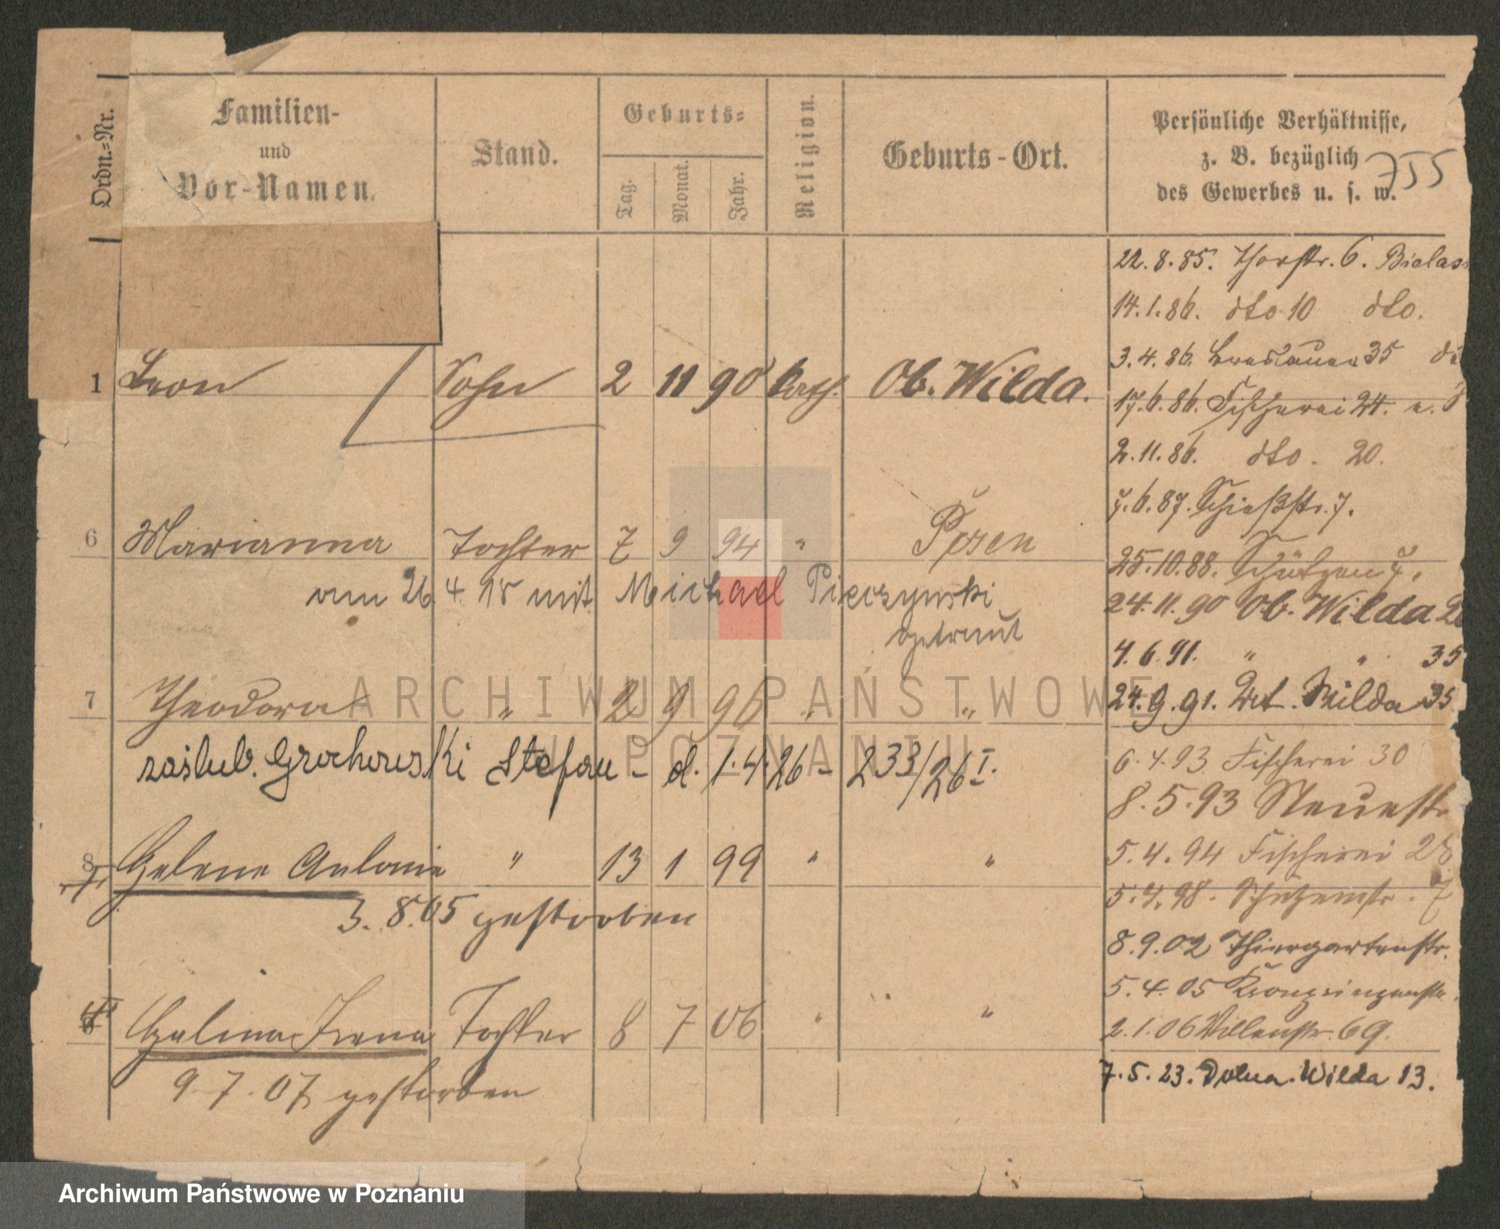 Ordn.-Nr.
Familien-
und
Vor-Namen.
Stand.
Geburts-
Tag.
Monat.
Jahr.
Religion.
Geburts-Ort.
Persönliche Verhältnisse,
z. B. bezüglich
des Gewerbes u. s. w.
755
1 Leon Sohn 2 11 90 kath. Ob. Wilda.
6 Marianna Tochter 7 9 94 " Posen
am 26 4. 15 mit Michael Pieczynski
getraut
7 Theodora " 2 9 96 " "
zaślub. Grochowski Stefan - d. 1.4.26 - 233/26 I.
8 Helene Antonie " 13 1 99 " "
3. 8.05 gestorben
Halina Irena Tochter 8 7 06 " "
9.7.07 gestorben
22.8.85. Thorstr. 6. Bielas
14.1.86. dto 10 dto.
3.4.86. Breslauer 35
17.6.86. Fischerei 24.
2.11.86. dto. 20.
7.6.87. Schießstr. 7.
25.10.88. Schützen 7.
24.11.90 Ob. Wilda
4.6.91. " " 35
24.9.91. Wilda 35
6.4.93 Fischerei 30
8.5.93 Neuestr
5.4.94 Fischerei 28
5.4.98. Schützenstr. 7
8.9.02 Thiergartenstr.
5.4.05 Kronprinzenstr.
2.1.06 Villenstr. 69.
7.5.23. Dolna Wilda 13.
ARCHIWUM PAŃSTWOWE
W POZNANIU
Archiwum Państwowe w Poznaniu